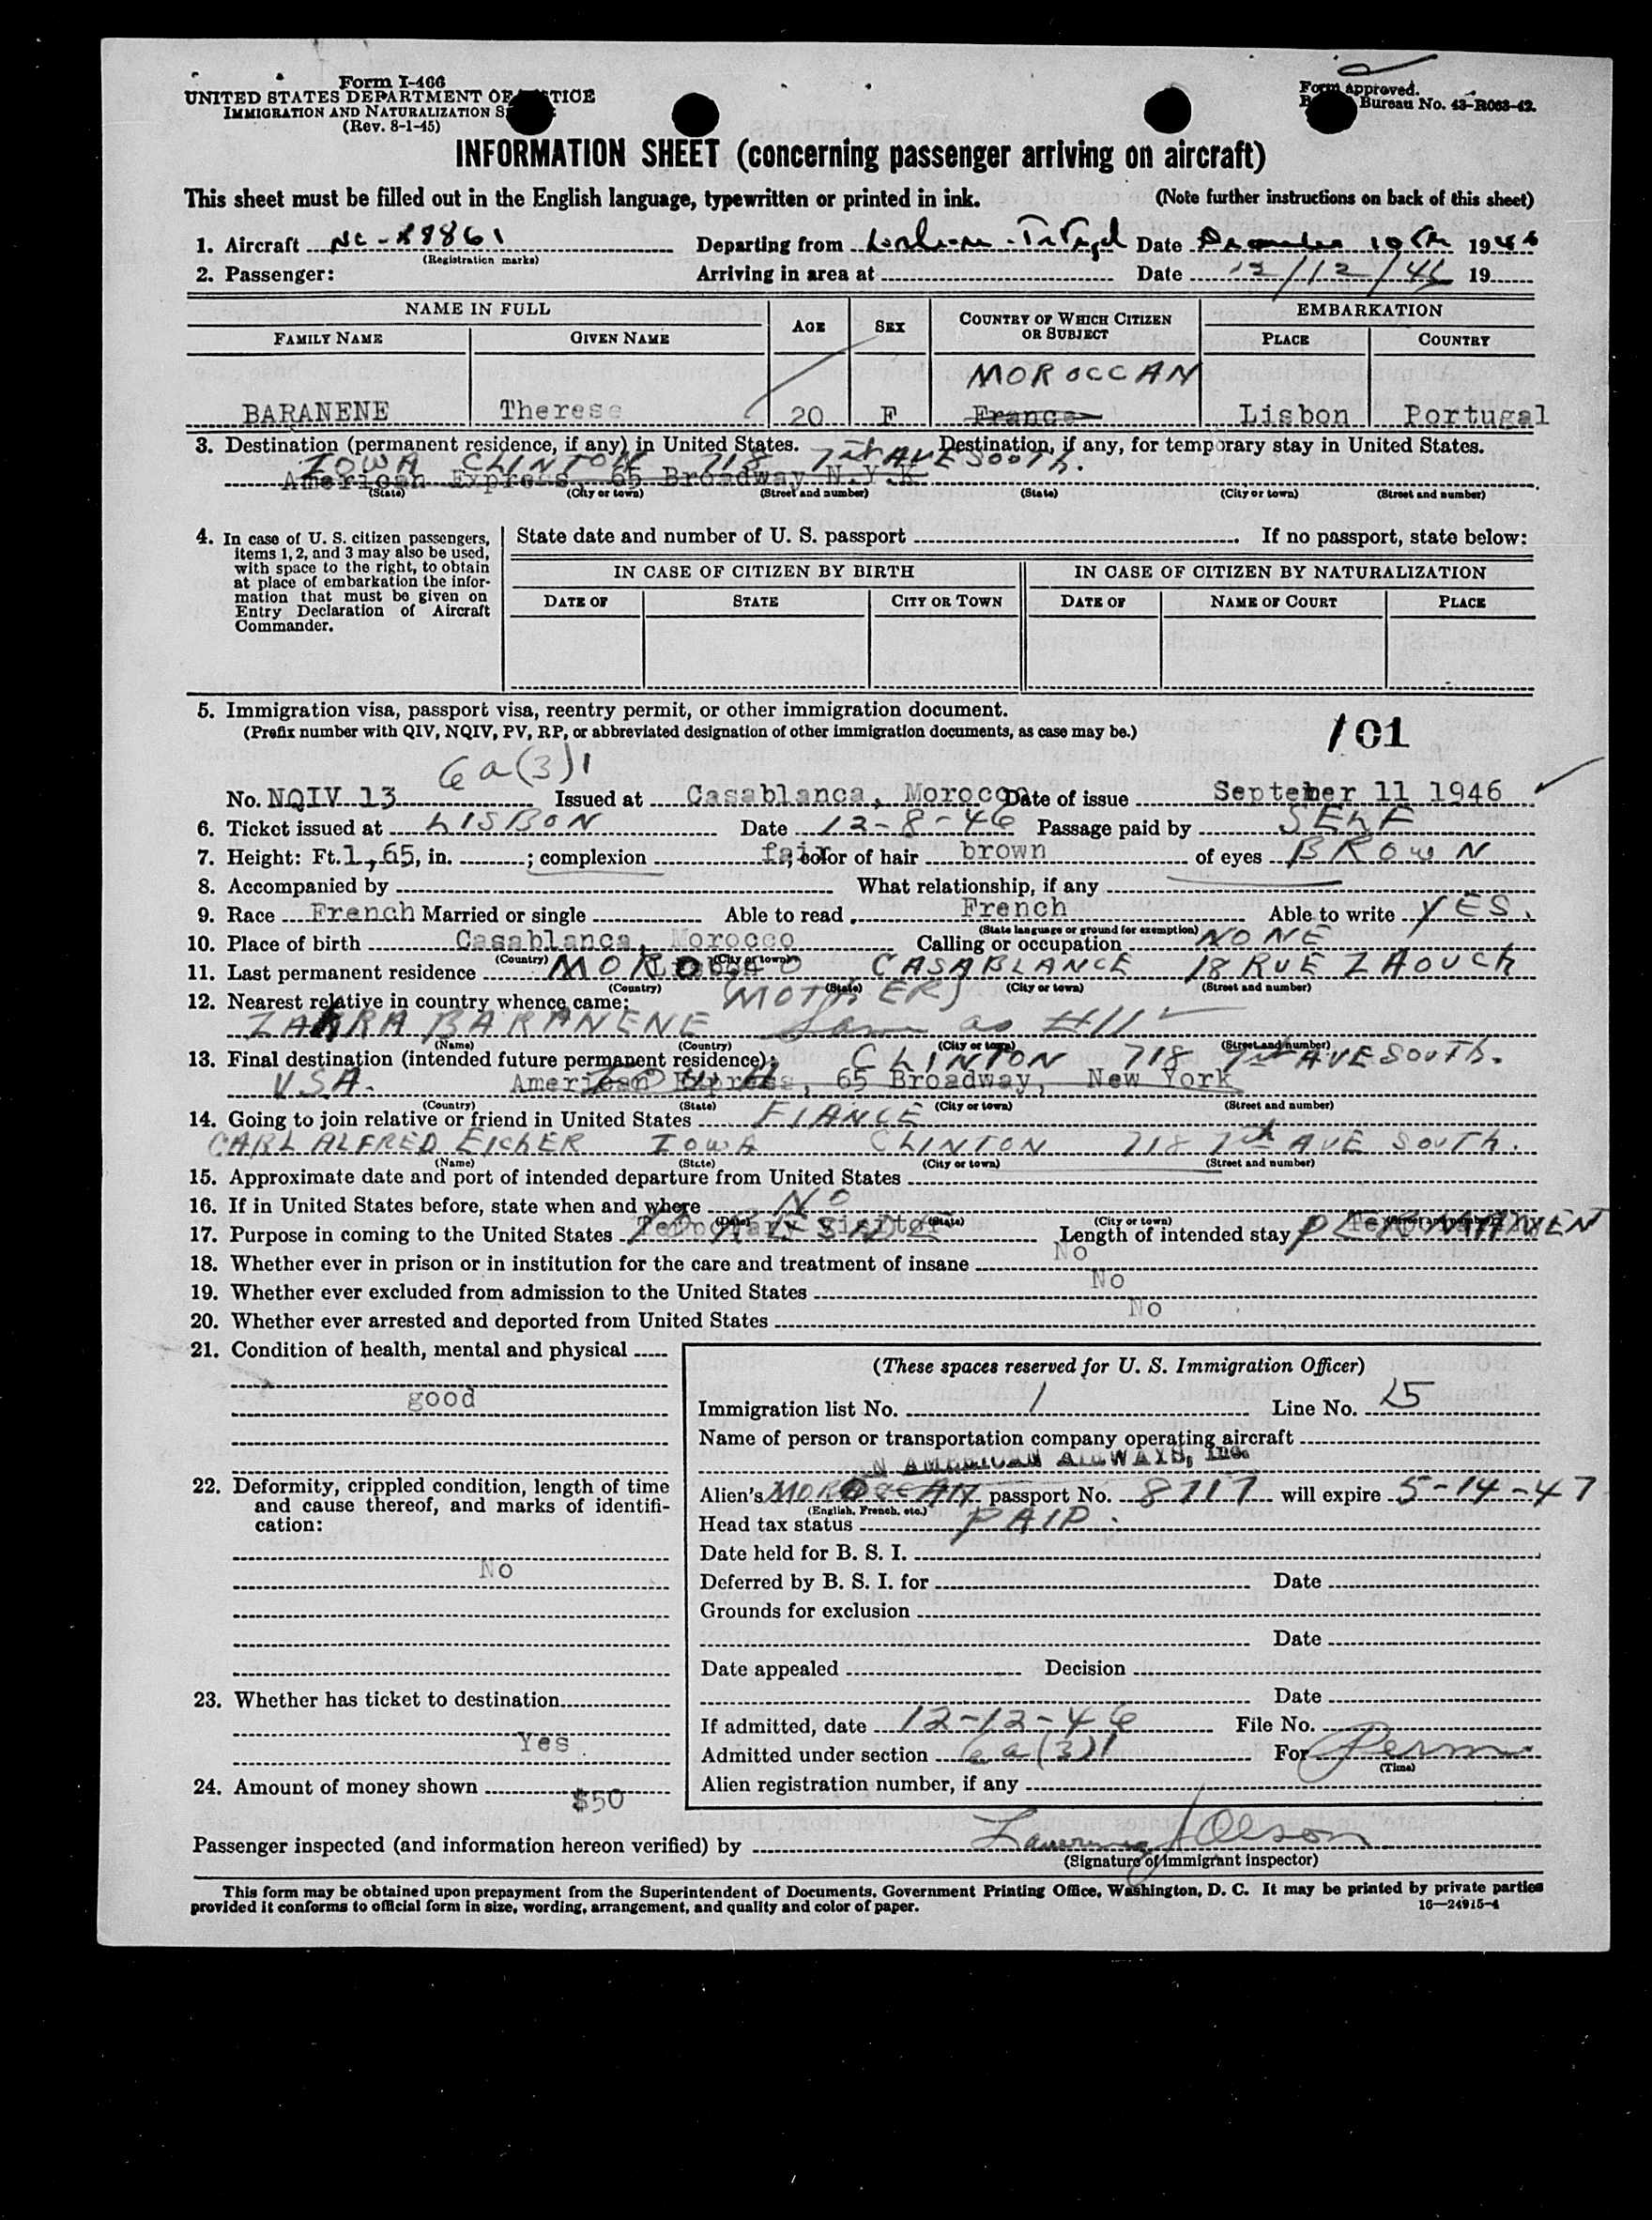 Form I-466
UNITED STATES DEPARTMENT OF JUSTICE
IMMIGRATION AND NATURALIZATION
(Rev. 8-1-45)
Form approved.
Bureau No. 43-R063-42.
INFORMATION SHEET (concerning passenger arriving on aircraft)
This sheet must be filled out in the English language, typewritten or printed in ink. (Note further instructions on back of this sheet)
1. Aircraft NC-88861 Departing from Date December 10th 1946
(Registration marks)
2. Passenger: Arriving in area at Date 12/12/46 19
NAME IN FULL AGE SEX COUNTRY OF WHICH CITIZEN OR SUBJECT EMBARKATION
FAMILY NAME GIVEN NAME PLACE COUNTRY
MOROCCAN
BARANENE Therese 20 F France Lisbon Portugal
3. Destination (permanent residence, if any) in United States. Destination, if any, for temporary stay in United States.
IOWA CLINTON 718 7th AVE SOUTH.
American Express, 65 Broadway N.Y.K.
(State) (City or town) (Street and number) (State) (City or town) (Street and number)
4. In case of U. S. citizen passengers, items 1, 2, and 3 may also be used, with space to the right, to obtain at place of embarkation the information that must be given on Entry Declaration of Aircraft Commander.
State date and number of U. S. passport . If no passport, state below:
IN CASE OF CITIZEN BY BIRTH IN CASE OF CITIZEN BY NATURALIZATION
DATE OF STATE CITY OR TOWN DATE OF NAME OF COURT PLACE
5. Immigration visa, passport visa, reentry permit, or other immigration document.
(Prefix number with QIV, NQIV, PV, RP, or abbreviated designation of other immigration documents, as case may be.)
101
6a(3)1
No. NQIV 13 Issued at Casablanca, Morocco Date of issue September 11 1946
6. Ticket issued at LISBON Date 12-8-46 Passage paid by SELF
7. Height: Ft. 1,65, in. ; complexion fair, color of hair brown of eyes BROWN
8. Accompanied by What relationship, if any
9. Race French Married or single Able to read French Able to write YES.
(State language or ground for exemption)
10. Place of birth Casablanca, Morocco Calling or occupation NONE
(Country) (City or town)
11. Last permanent residence MOROCCO CASABLANCE 18 RUE ZAOUCH
(Country) (State) (City or town) (Street and number)
12. Nearest relative in country whence came: (MOTHER)
ZAHRA BARANENE Same as #11
(Name) (Country) (City or town) (Street and number)
13. Final destination (intended future permanent residence): CLINTON 718 7th AVE SOUTH.
USA. IOWA American Express, 65 Broadway, New York
(Country) (State) (City or town) (Street and number)
14. Going to join relative or friend in United States FIANCE
CARL ALFRED EICHER IOWA CLINTON 718 7th AVE SOUTH.
(Name) (State) (City or town) (Street and number)
15. Approximate date and port of intended departure from United States
16. If in United States before, state when and where NO
(Date) (State) (City or town) (Street and number)
17. Purpose in coming to the United States Temporary visitor TO RESIDE Length of intended stay PERMANENT
18. Whether ever in prison or in institution for the care and treatment of insane No
19. Whether ever excluded from admission to the United States No
20. Whether ever arrested and deported from United States No
21. Condition of health, mental and physical
good
22. Deformity, crippled condition, length of time and cause thereof, and marks of identification:
No
23. Whether has ticket to destination
Yes
24. Amount of money shown $50
(These spaces reserved for U. S. Immigration Officer)
Immigration list No. 1 Line No. 15
Name of person or transportation company operating aircraft
N AMERICAN AIRWAYS, Inc.
Alien's MOROCCAN passport No. 8717 will expire 5-14-47
(English, French, etc.)
Head tax status PAID.
Date held for B. S. I.
Deferred by B. S. I. for Date
Grounds for exclusion
Date
Date appealed Decision
Date
If admitted, date 12-12-46 File No.
Admitted under section 6a(3)1 For Perm
(Time)
Alien registration number, if any
Passenger inspected (and information hereon verified) by Olson
(Signature of immigrant inspector)
This form may be obtained upon prepayment from the Superintendent of Documents, Government Printing Office, Washington, D. C. It may be printed by private parties
provided it conforms to official form in size, wording, arrangement, and quality and color of paper. 16—24915-4